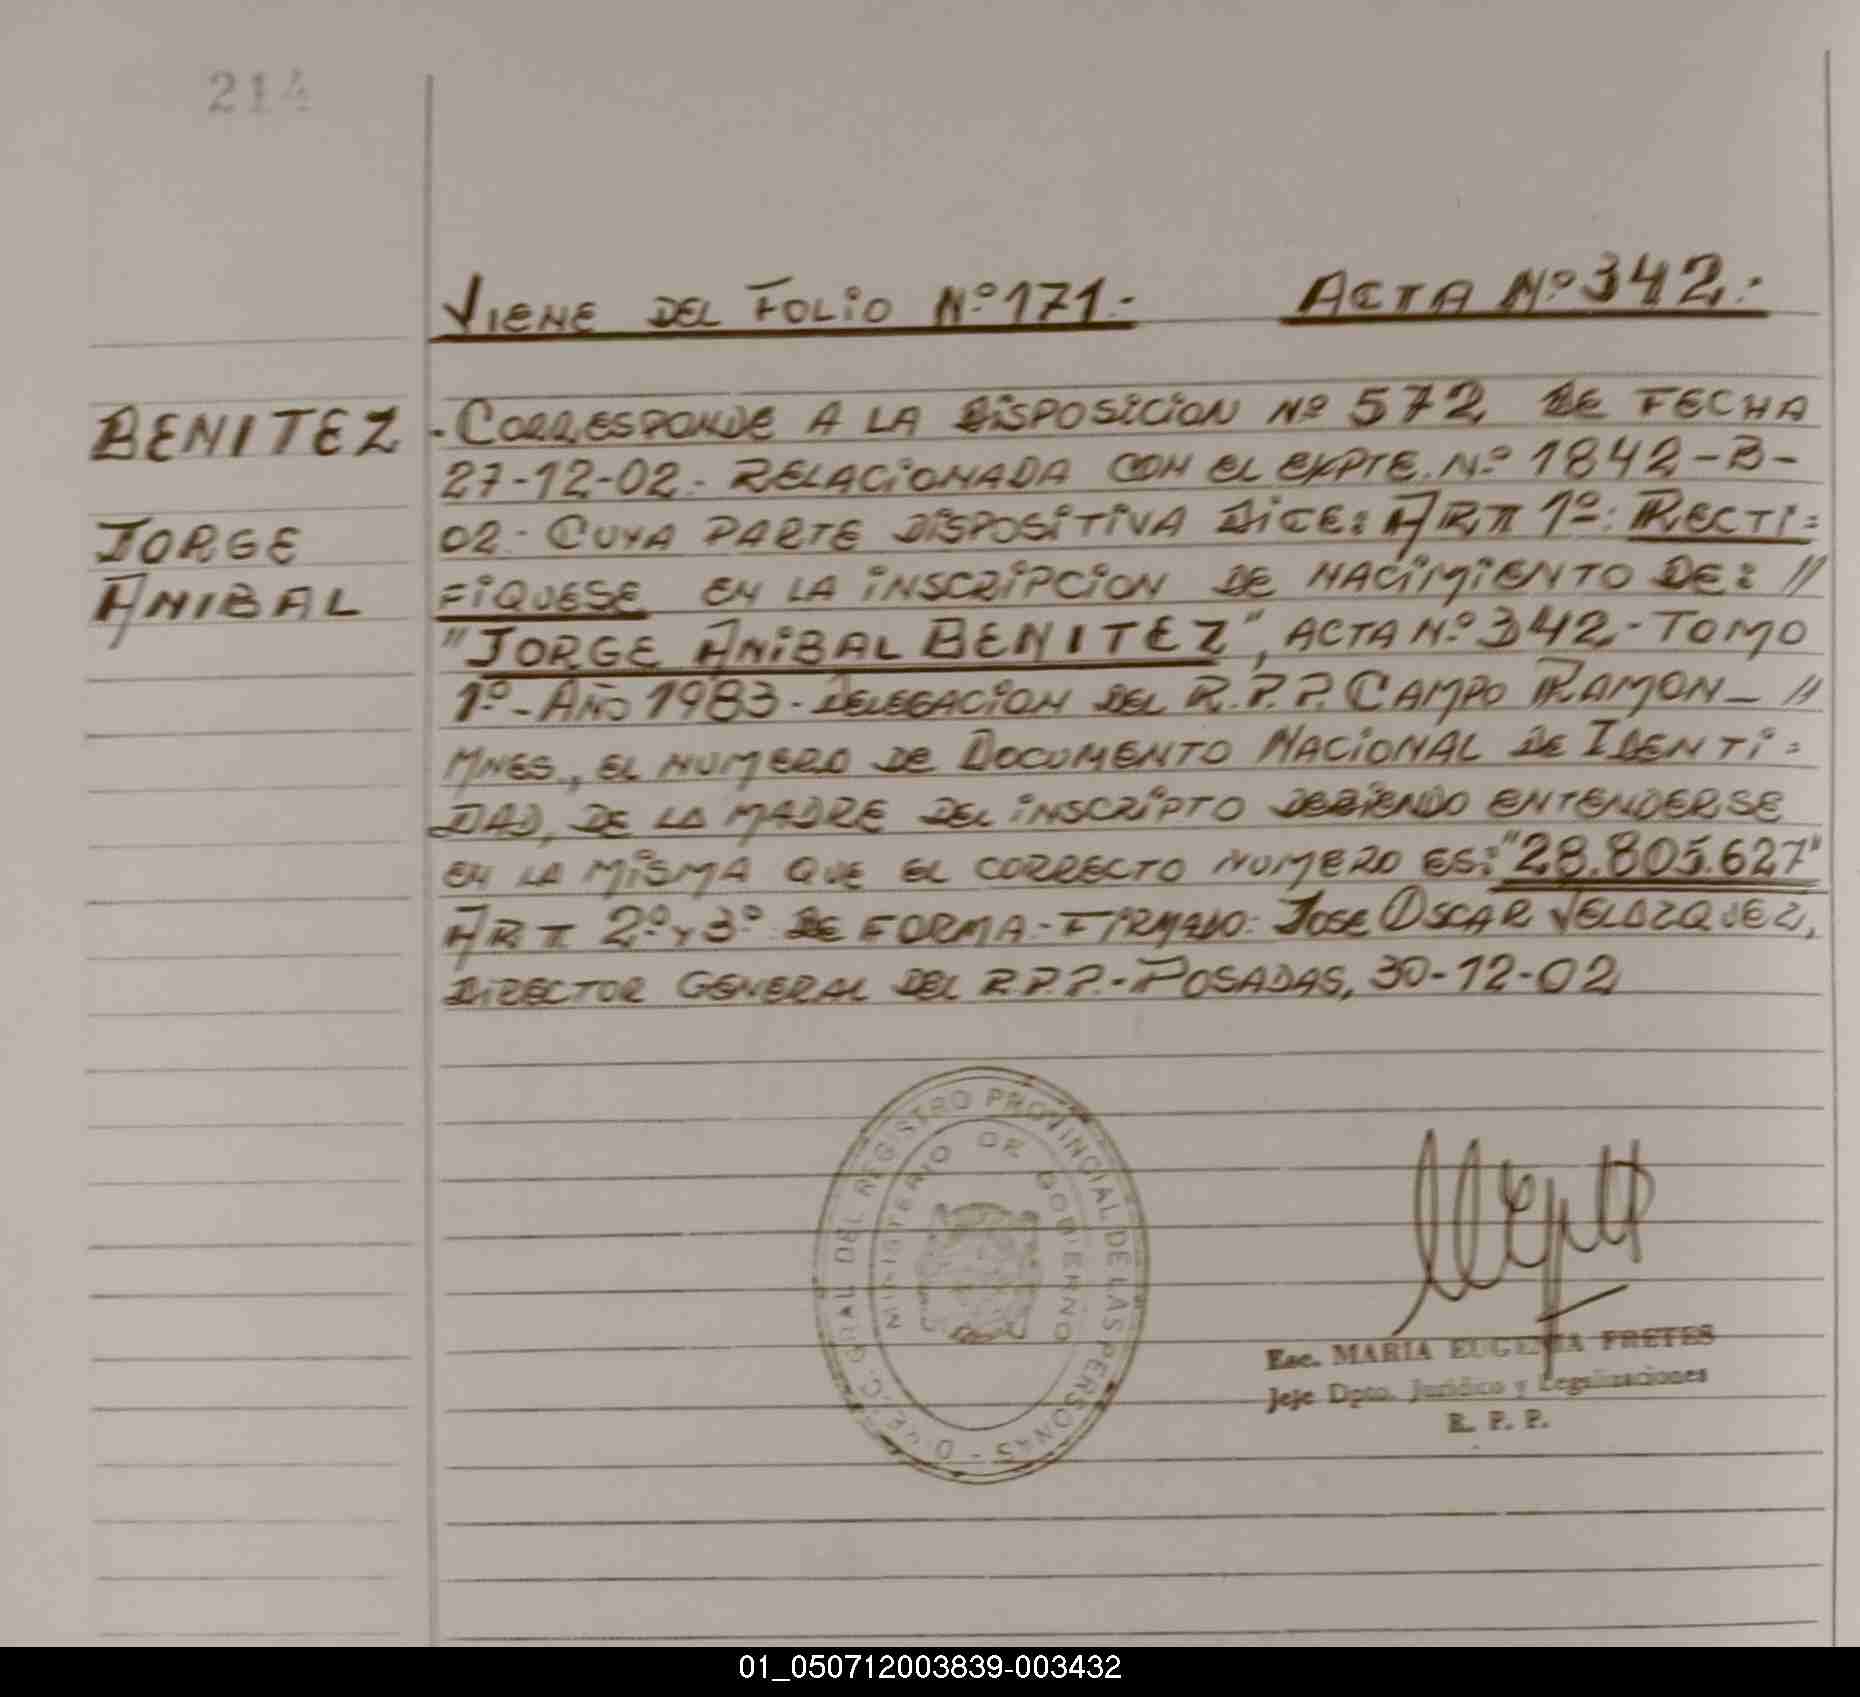 214
VIENE DEL FOLIO Nº 171.-   ACTA Nº 342.-
BENITEZ
JORGE
ANIBAL
-CORRESPONDE A LA DISPOSICION Nº 572 DE FECHA
27-12-02.- RELACIONADA CON EL EXPTE. Nº 1842-B-
02- CUYA PARTE DISPOSITIVA DICE: ART 1º: RECTI=
FIQUESE EN LA INSCRIPCION DE NACIMIENTO DE: //
"JORGE ANIBAL BENITEZ", ACTA Nº 342-TOMO
1º-AÑO 1983-DELEGACION DEL R.P.P. CAMPO RAMON_ //
MNES., EL NUMERO DE DOCUMENTO NACIONAL DE IDENTI=
DAD, DE LA MADRE DEL INSCRIPTO DEBIENDO ENTENDERSE
EN LA MISMA QUE EL CORRECTO NUMERO ES: "28.805.627"
ART 2º Y 3º DE FORMA-FIRMADO: JOSE OSCAR VELAZQUEZ,
DIRECTOR GENERAL DEL R.P.P.-POSADAS, 30-12-02
DIREC. GRAL DEL REGISTRO PROVINCIAL DE LAS PERSONAS -
MINISTERIO DE GOBIERNO
Esc. MARIA EUGENIA PRETES
Jefe Dpto. Jurídico y Legalizaciones
R. P. P.
01_050712003839-003432